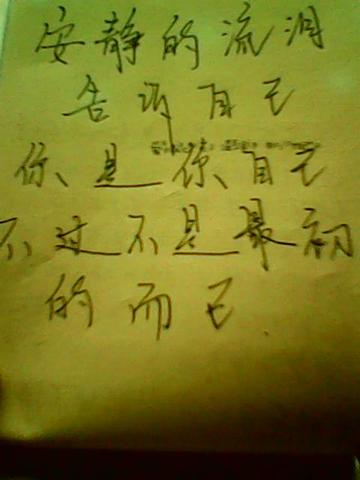 安静的流泪
告诉自己
你是你自己
不过不是最初
的而已